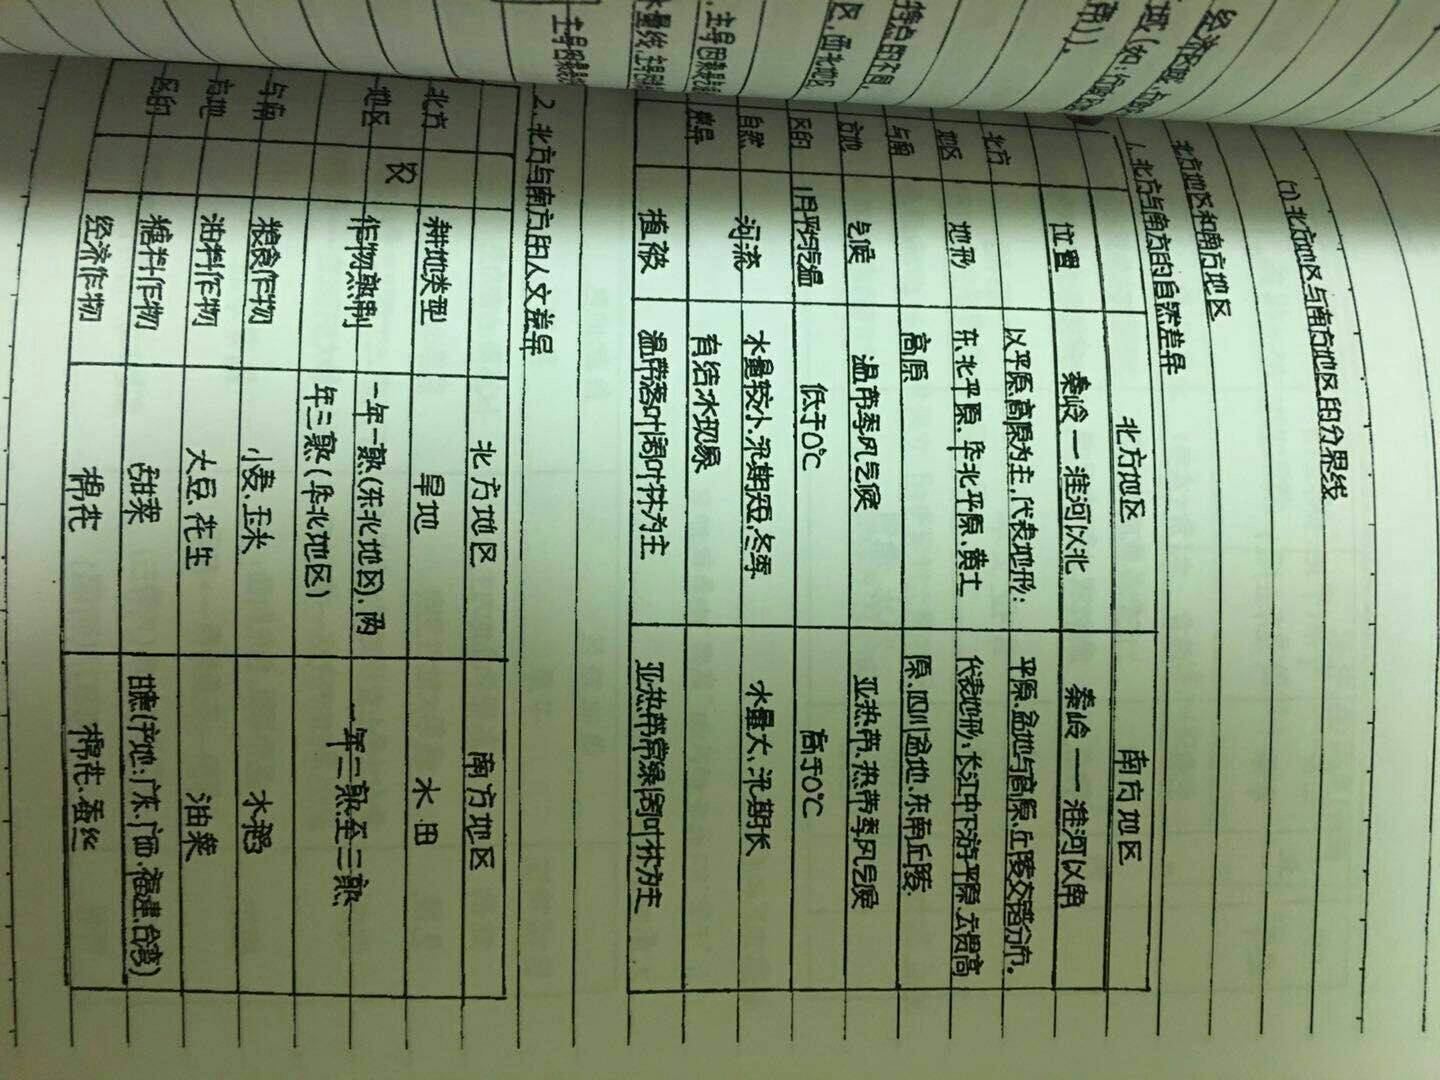 (7).北方地区与南方地区的分界线
北方地区和南方地区
1.北方与南方的自然差异
北方地区 南方地区
位置 秦岭一淮河以北 秦岭——淮河以南
以平原高原为主,代表地形: 平原、盆地与高原、丘陵交错分布。
北方 地形 东北平原、华北平原、黄土 代表地形:长江中下游平原、云贵高
地区 高原 原、四川盆地、东南丘陵.
与南 气候 温带季风气候 亚热带、热带季风气候
方地 1月平均气温 低于0℃ 高于0℃
区的 河流 水量较小、汛期短、冬季 水量大、汛期长
自然 有结冰现象
差异 植被 温带落叶阔叶林为主 亚热带常绿阔叶林为主
2.北方与南方的人文差异
北方地区 南方地区
北方 农 耕地类型 旱地 水田
地区 作物熟制 一年一熟(东北地区)、两 一年二熟至三熟
年三熟(华北地区)
与南 粮食作物 小麦、玉米 水稻
方地 油料作物 大豆、花生 油菜
区的 糖料作物 甜菜 甘蔗(产地:广东、广西、福建、台湾)
经济作物 棉花 棉花、蚕丝